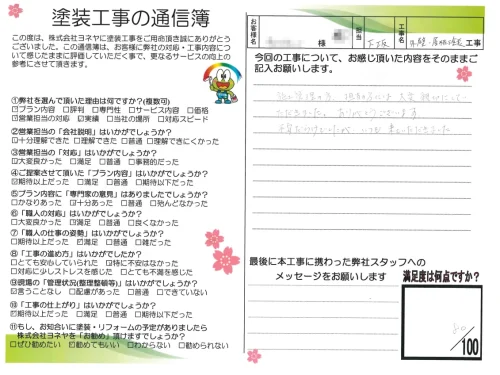 塗装工事の通信簿
この度は、株式会社ヨネヤに塗装工事をご用命頂き誠にありがとう
ございました。この通信簿は、お客様に弊社の対応・工事内容につい
て感じたままに評価していただく事で、更なるサービスの向上の
参考にさせて頂きます。
①弊社を選んで頂いた理由は何ですか?(複数可)
□プラン内容 □評判 □専門性 □サービス内容 □価格
☑営業担当の対応 ☑実績 □当社の場所 □対応スピード
②営業担当の「会社説明」はいかがでしょうか?
☑十分理解できた □理解できた □普通 □理解できにくかった
③営業担当の「対応」はいかがでしょうか?
☑大変良かった □満足 □普通 □事務的だった
④ご提案させて頂いた「プラン内容」はいかがでしょうか?
☑期待以上だった □満足 □普通 □期待以下だった
⑤プラン内容に「専門家の意見」はありましたでしょうか?
□かなりあった ☑十分あった □普通 □殆んどなかった
⑥「職人の対応」はいかがでしょうか?
□大変良かった ☑満足 □普通 □良くなかった
⑦「職人の仕事の姿勢」はいかがでしょうか?
□期待以上だった ☑満足 □普通 □雑だった
⑧「工事の進め方」はいかがでしたか?
□とても安心していられた ☑特に不安はなかった
□対応に少しストレスを感じた □とても不満を感じた
⑨現場の「管理状況(整理整頓等)」はいかがでしょうか?
☑言うことなし □配慮があった □普通 □できていない
⑩「工事の仕上がり」はいかがでしょうか?
☑期待以上だった □満足 □普通 □期待以下だった
⑪もし、お知合いに塗装・リフォームの予定がありましたら
株式会社ヨネヤを「お勧め」頂けますでしょうか?
□ぜひ勧めたい ☑勧めてもいい □わからない □勧められない
お客様名
様
担当
工事名
外壁・屋根塗装工事
今回の工事について、お感じ頂いた内容をそのままご
記入お願いします。
ただきました。ありがとうございます
最後に本工事に携わった弊社スタッフへの
メッセージをお願いします
満足度は何点ですか?
80
/100